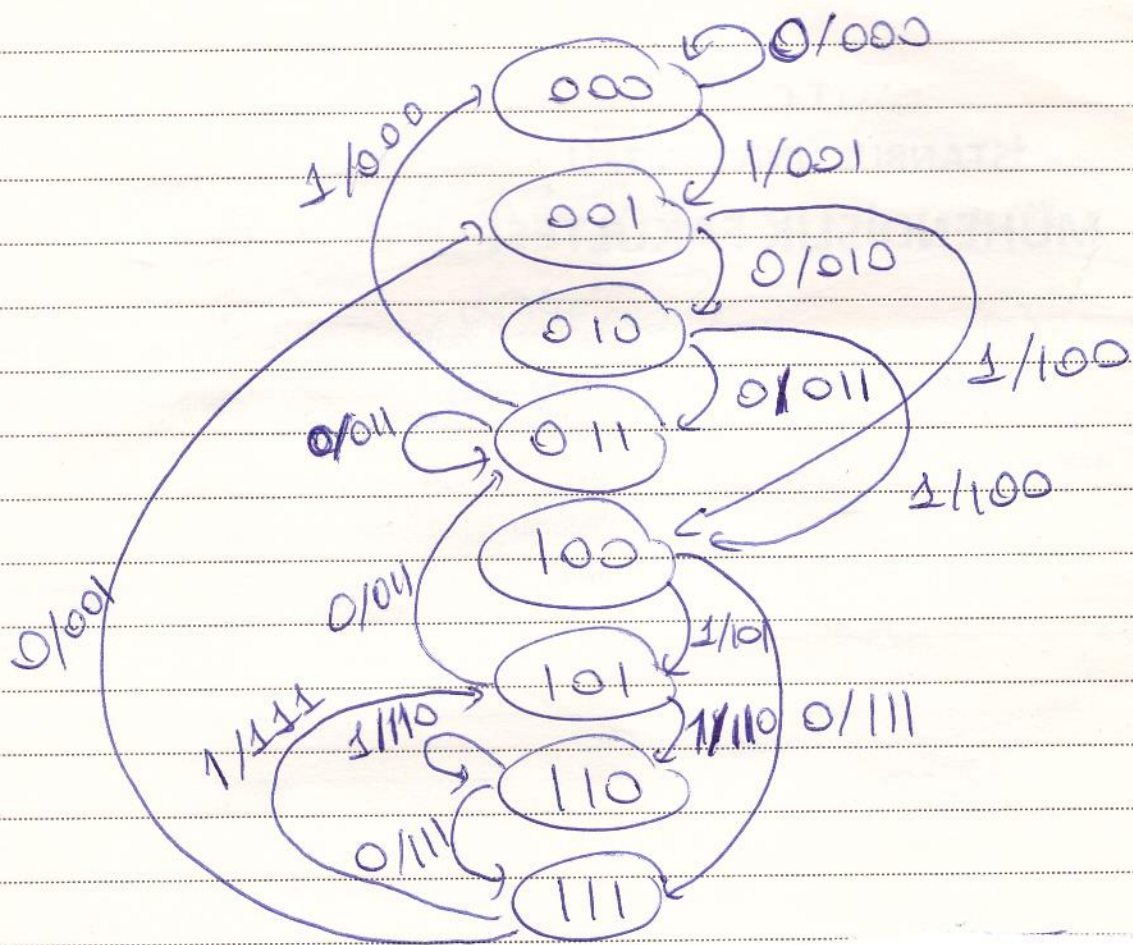 0/000
000
1/000
1/001
001
0/010
010
1/100
0/011
0/011
011
1/100
100
0/011
1/101
0/001
101
1/111
1/110
1/110
0/111
110
0/111
111